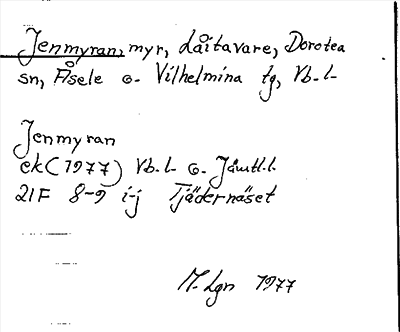 Jenmyran, myr, Låitavare, Dorotea
sn, Åsele o. Vilhelmina tg, Vb.l.
Jenmyran
ek (1977) Vb.l. o. Jämtl.l.
21F 8-9 i-j Tjädernäset
M. Lgn 1977